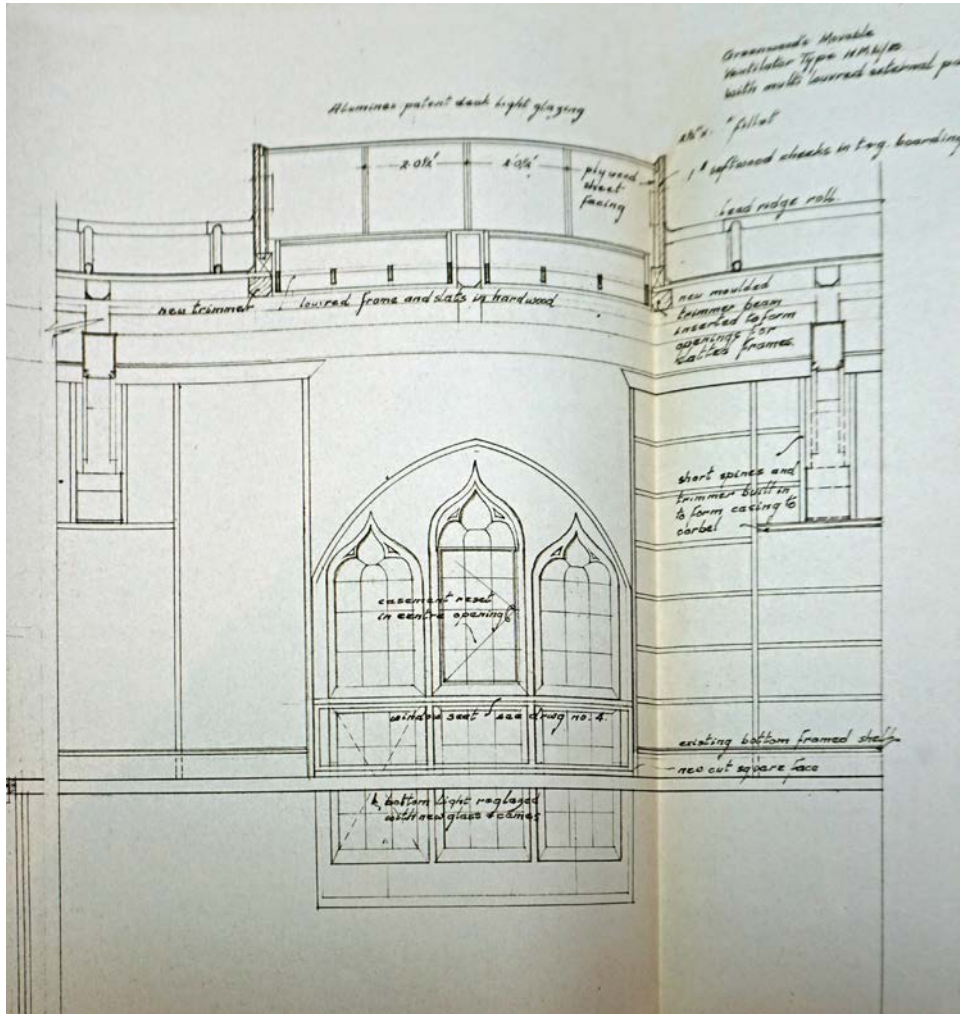 Greenwood's Movable
Ventilator Type
with multi louvred external
Aluminex patent deck light glazing
fillet
1" softwood cheeks in t&g. boarding
2'0½" 2'0½"
plywood
sheet
facing
lead ridge roll.
new trimmer
louvred frame and slats in hardwood
new moulded
trimmer beam
inserted to form
openings for
slatted frames.
short spines and
trimmer built in
to form casing to
corbel
casement reset
in centre opening
window seat see drwg no. 4.
existing bottom framed shelf
new cut square face
bottom light reglazed
with new glass & cames